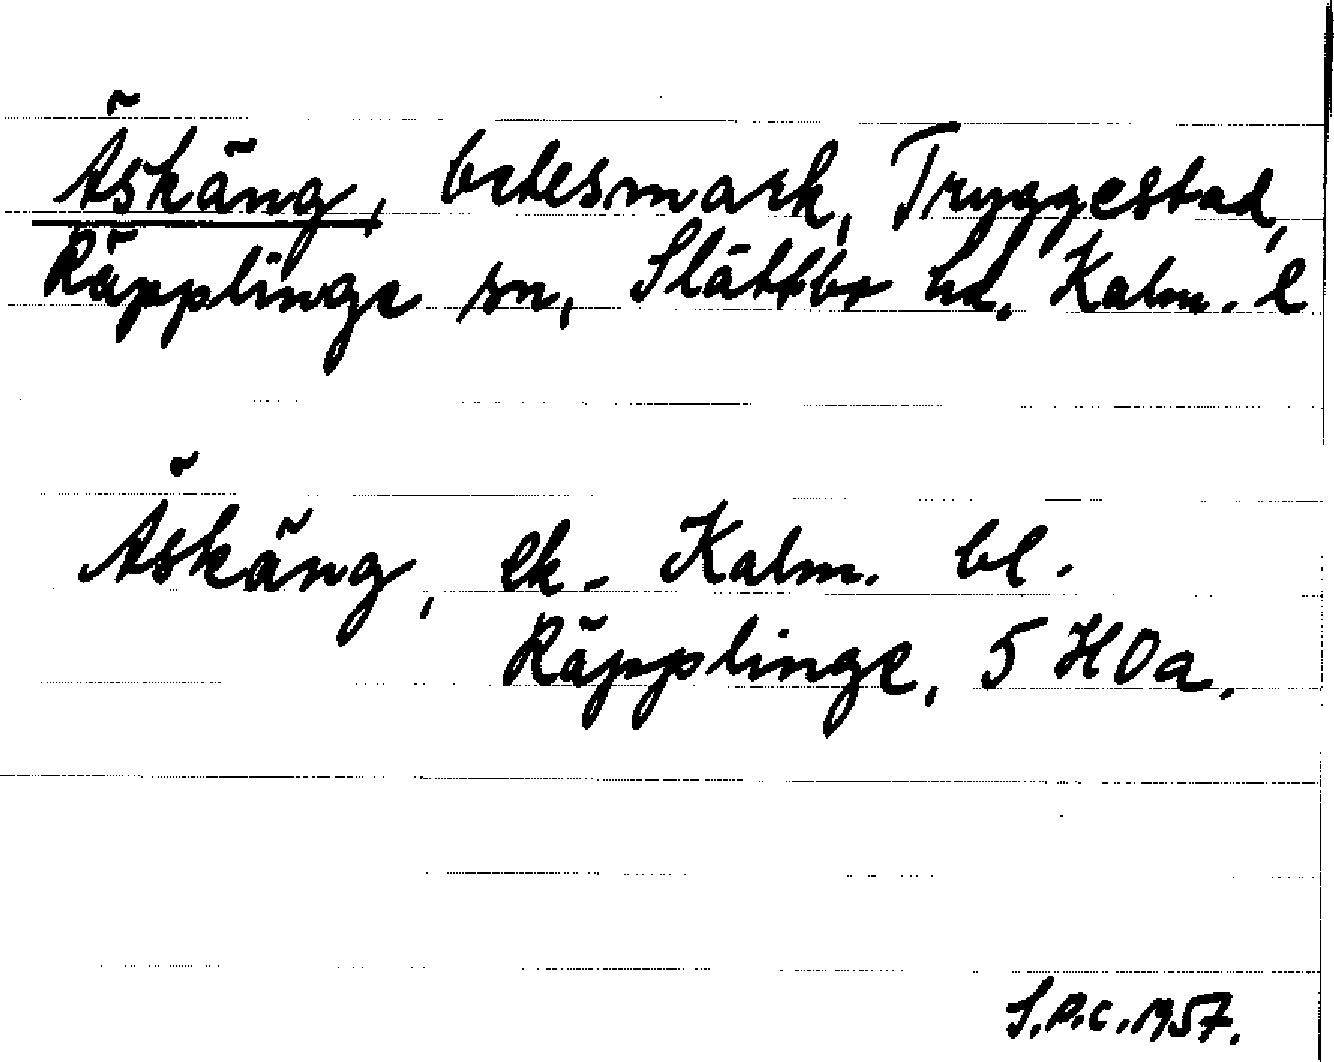 Äskäng, betesmark, Tryggestad,
Räpplinge sn, Slättbo hd. Kalm. l
Äskäng, ek. Kalm. bl.
Räpplinge, 5 H0a.
S.P.C. 1957.